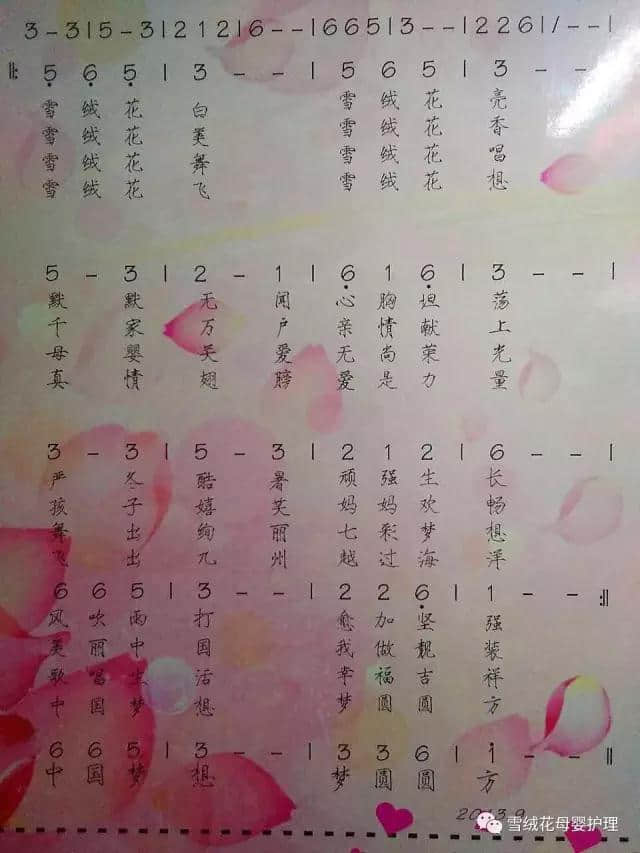 3-3|5-3|212|6--|665|3--|226|1--|
‖: 5 6 5 | 3 - - | 5 6 5 | 3 - - |
雪绒花白 雪绒花亮
雪绒花美 雪绒花香
雪绒花舞 雪绒花唱
雪绒花飞 雪绒花想
5 - 3 | 2 - 1 | 6 1 6 | 3 - - |
默默无闻心胸坦荡
千家万户亲情献上
母婴关爱无尚荣光
真情翅膀爱是力量
3 - 3 | 5 - 3 | 2 1 2 | 6 - - |
严冬酷暑顽强生长
孩子嬉笑妈妈欢畅
舞出绚丽七彩梦想
飞出九州越过海洋
6 6 5 | 3 - - | 2 2 6 | 1 - - :‖
风吹雨打愈加坚强
美丽中国我做靓装
歌唱生活幸福吉祥
中国梦想梦圆圆方
6 6 5 | 3 - - | 3 3 6 | 1 - - ‖
中国梦想 梦圆圆方
2013.9
雪绒花母婴护理